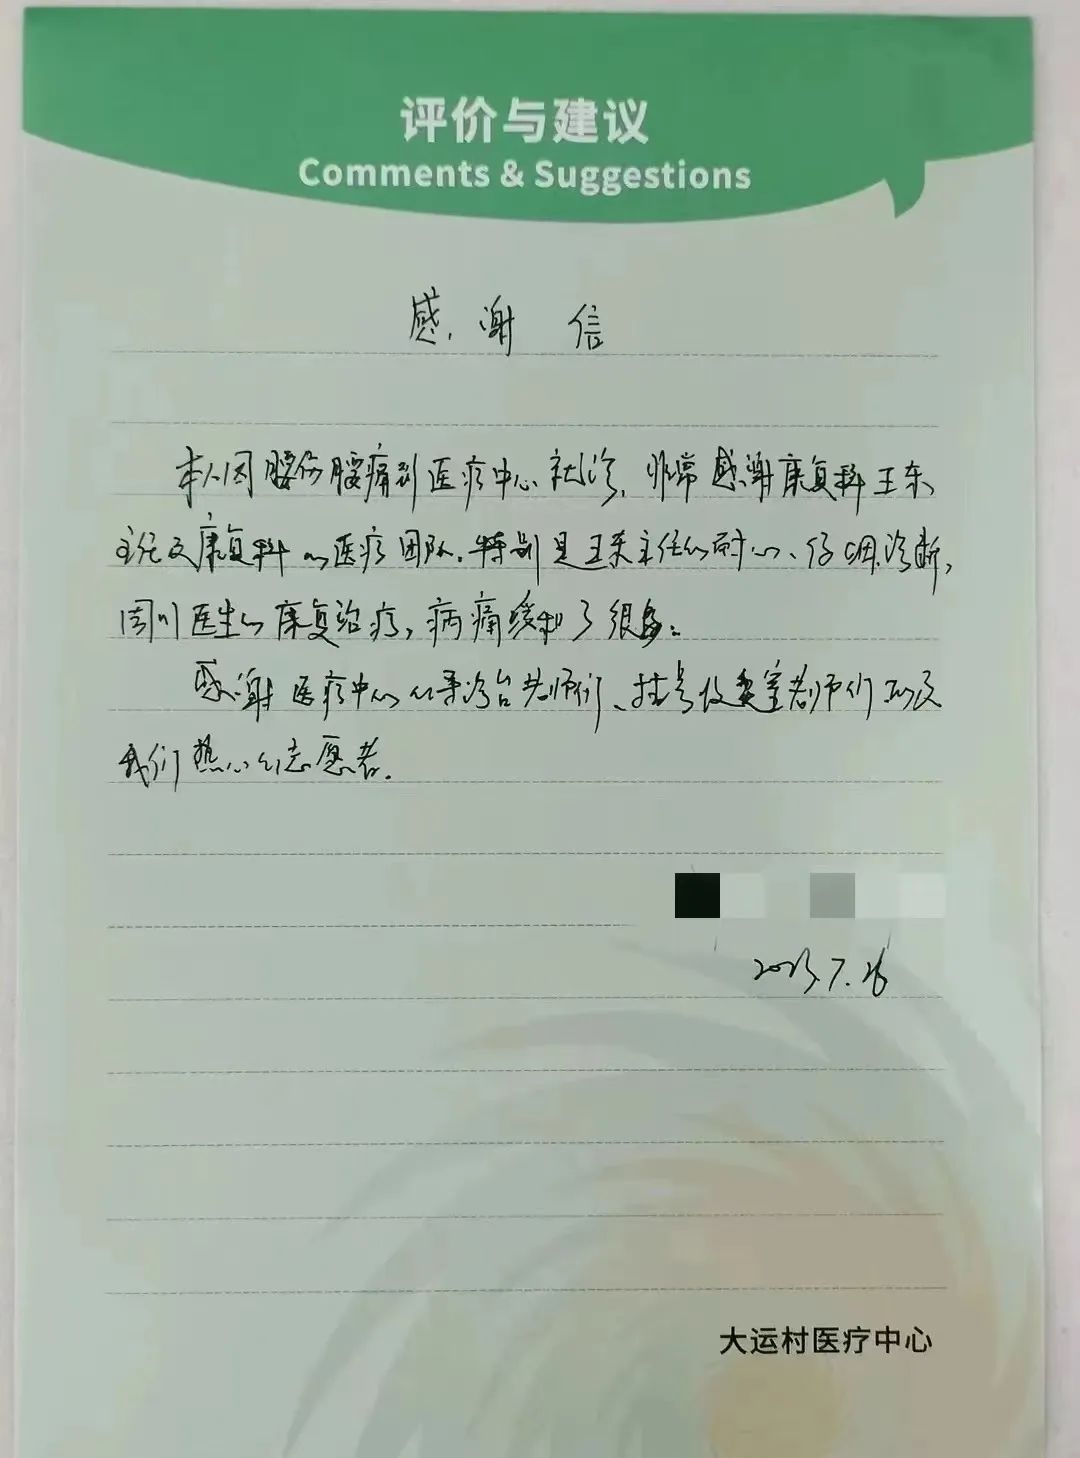 评价与建议
Comments & Suggestions
感谢信
本人因腰伤腰痛到医疗中心就诊,非常感谢康复科王东
主任及康复科的医疗团队.特别是王东主任的耐心、仔细诊断,
周川医生的康复治疗,病痛缓和了很多.
感谢医疗中心的导诊台老师们、挂号收费室老师们以及
我们热心的志愿者.
2023.7.26
大运村医疗中心